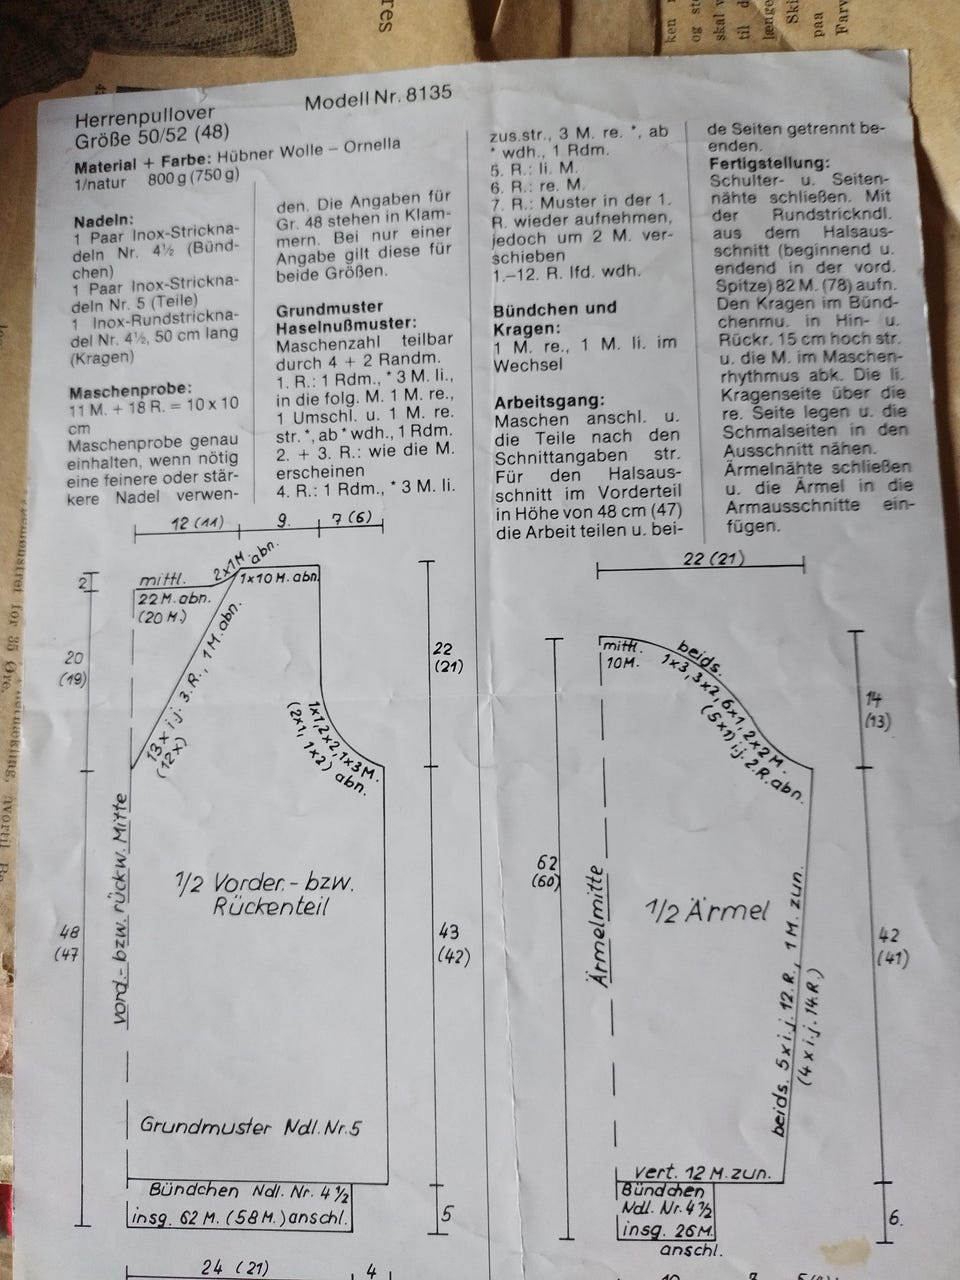 res
ken
og st
skal v
til d
længe
Ski
paa
Farv
Herrenpullover
Modell Nr. 8135
Größe 50/52 (48)
Material + Farbe: Hübner Wolle – Ornella
1/natur 800 g (750 g)
Nadeln:
1 Paar Inox-Strickna-
deln Nr. 4½ (Bünd-
chen)
1 Paar Inox-Strickna-
deln Nr. 5 (Teile)
1 Inox-Rundstrickna-
del Nr. 4½, 50 cm lang
(Kragen)
Maschenprobe:
11 M. + 18 R. = 10 x 10
cm
Maschenprobe genau
einhalten, wenn nötig
eine feinere oder stär-
kere Nadel verwen-
den. Die Angaben für
Gr. 48 stehen in Klam-
mern. Bei nur einer
Angabe gilt diese für
beide Größen.
Grundmuster
Haselnußmuster:
Maschenzahl teilbar
durch 4 + 2 Randm.
1. R.: 1 Rdm., * 3 M. li.,
in die folg. M. 1 M. re.,
1 Umschl. u. 1 M. re.
str. *, ab * wdh., 1 Rdm.
2. + 3. R.: wie die M.
erscheinen
4. R.: 1 Rdm., * 3 M. li.
zus.str., 3 M. re. *, ab
* wdh., 1 Rdm.
5. R.: li. M.
6. R.: re. M.
7. R.: Muster in der 1.
R. wieder aufnehmen,
jedoch um 2 M. ver-
schieben
1.–12. R. lfd. wdh.
Bündchen und
Kragen:
1 M. re., 1 M. li. im
Wechsel
Arbeitsgang:
Maschen anschl. u.
die Teile nach den
Schnittangaben str.
Für den Halsaus-
schnitt im Vorderteil
in Höhe von 48 cm (47)
die Arbeit teilen u. bei-
de Seiten getrennt be-
enden.
Fertigstellung:
Schulter- u. Seiten-
nähte schließen. Mit
der Rundstrickndl.
aus dem Halsaus-
schnitt (beginnend u.
endend in der vord.
Spitze) 82 M. (78) aufn.
Den Kragen im Bünd-
chenmu. in Hin- u.
Rückr. 15 cm hoch str.
u. die M. im Maschen-
rhythmus abk. Die li.
Kragenseite über die
re. Seite legen u. die
Schmalseiten in den
Ausschnitt nähen.
Ärmelnähte schließen
u. die Ärmel in die
Armausschnitte ein-
fügen.
12 (11) 9. 7 (6)
2
mittl.
22 M. abn.
(20 M.)
2x1M. abn.
1x10 M. abn.
20
(19)
13x i.j. 3. R., 1 M. abn.
(12x)
1x1, 2x2, 1x3 M.
(2x1, 1x2) abn.
22
(21)
vord.- bzw. rückw. Mitte
1/2 Vorder.- bzw.
Rückenteil
48
(47
43
(42)
Grundmuster Ndl. Nr. 5
Bündchen Ndl. Nr. 4 ½
insg. 62 M. (58 M.) anschl.
5
24 (21) 4
22 (21)
mittl.
10M.
beids.
1x3, 3x2, 6x1, 2x2 M.
(5x1) i.j. 2. R. abn.
14
(13)
62
(60)
Ärmelmitte
1/2 Ärmel
42
(41)
beids. 5x i.j. 12. R., 1 M. zun.
(4x i.j. 14. R.)
vert. 12 M. zun.
Bündchen
Ndl. Nr. 4½
insg. 26 M.
anschl.
6.